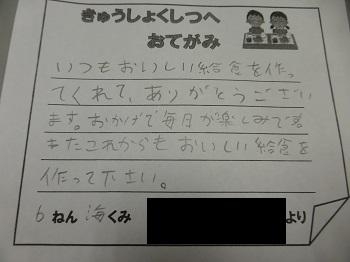 きゅうしょくしつへ
おてがみ
いつもおいしい給食を作っ
てくれて、ありがとうござい
ます。おかげで毎日が楽しみです
またこれからもおいしい給食を
作って下さい。
6ねん海くみ より